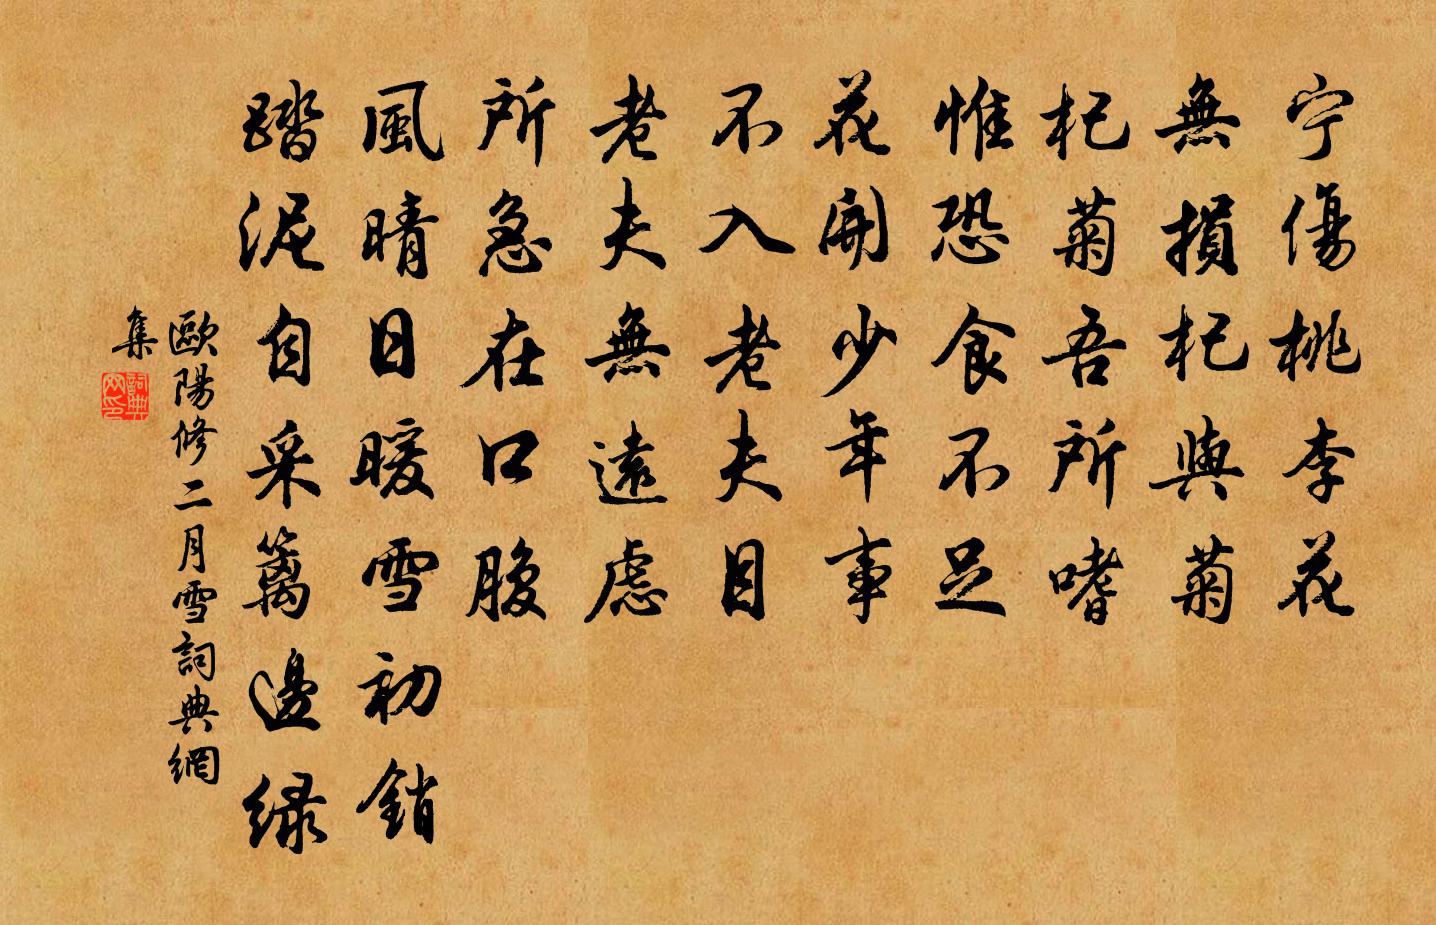 宁傷桃李花
無損杞與菊
杞菊吾所嗜
惟恐食不足
花開少年事
不入老夫目
老夫無遠慮
所急在口腹
風晴日暖雪初銷
踏泥自采籬邊緑
歐陽修二月雪詞典網
集
詞典
网印